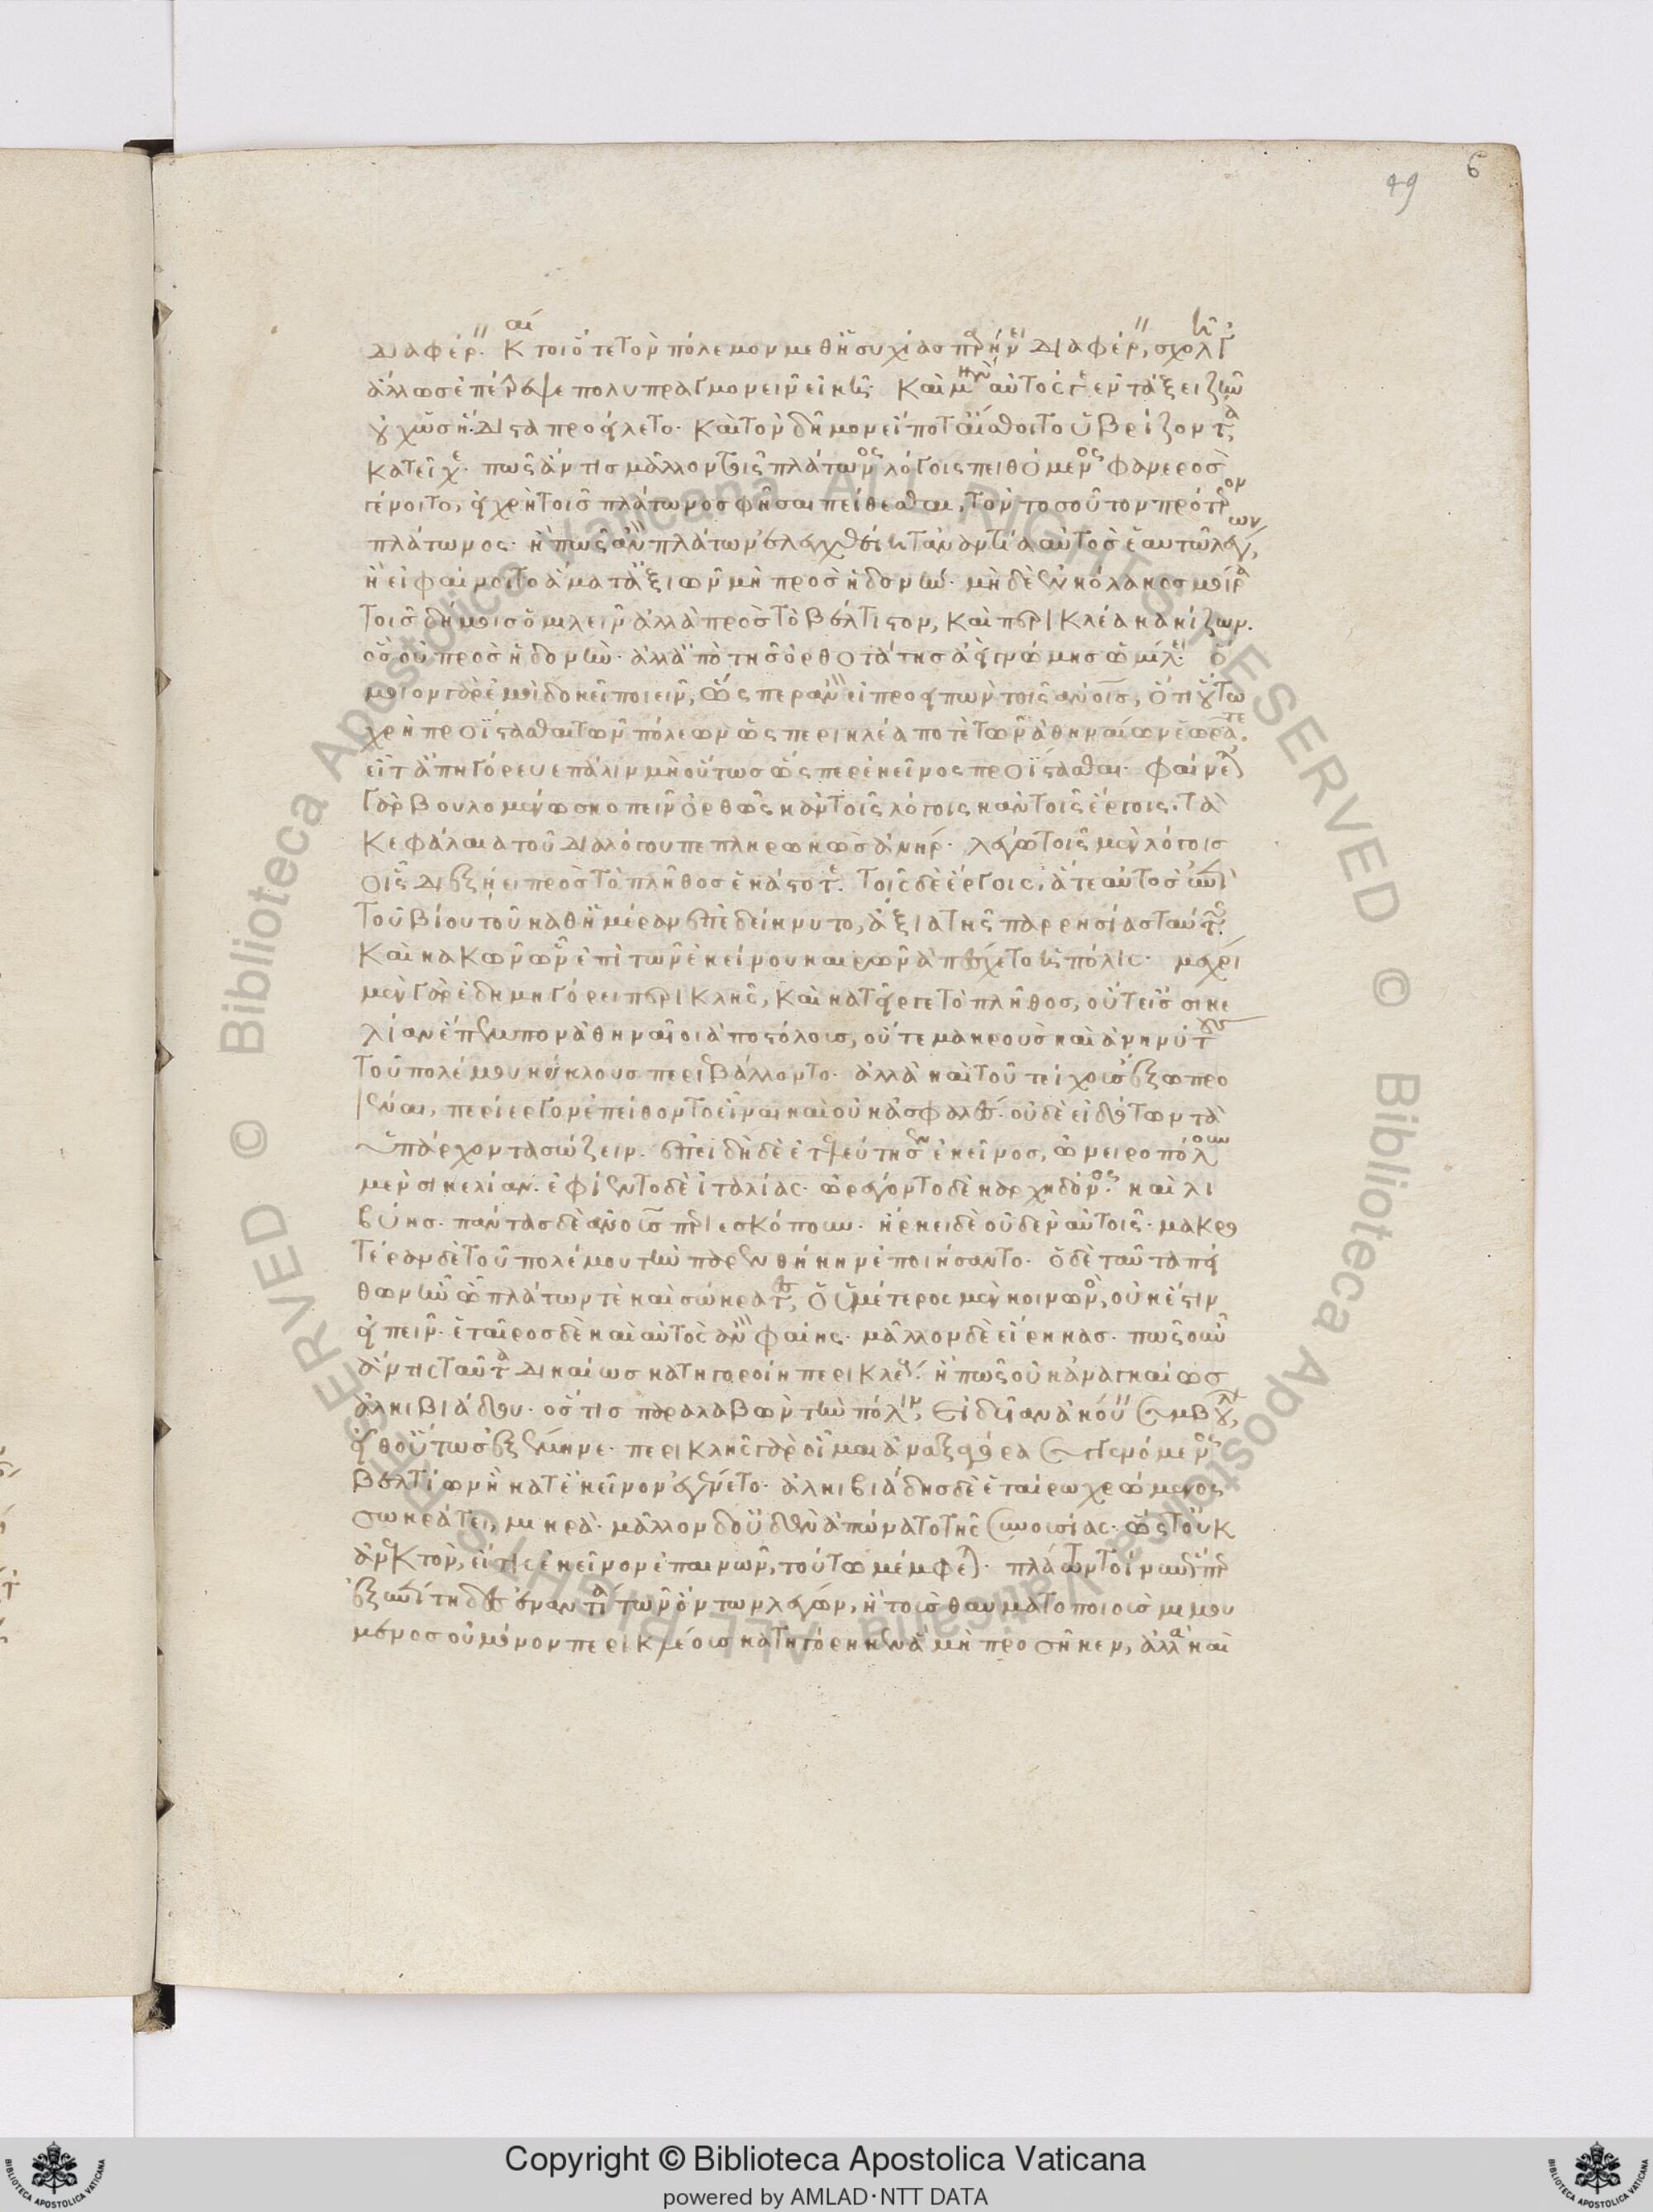 διαφέρειν. καίτοι ὅ τε τὸν πόλεμον μεθ' ἡσυχίας παρῄνει διαφέρειν, σχολῇ γ'
ἄλλως ἐπέτρεψε πολυπραγμονεῖν εἰκῆ. καὶ μὴν αὐτός γε ἐν τάξει ζῶν
οὐχ ὡς ἥδιστα προείλετο. καὶ τὸν δῆμον εἴ ποτ' αἴσθοιτο ὑβρίζοντα
κατεῖχε. πῶς ἄν τις μᾶλλον τοῖς πλάτωνος λόγοις πειθόμενος φανερὸς
γένοιτο, εἰ χρὴ τοῖς πλάτωνος φῆσαι πείθεσθαι, τὸν τοσοῦτον πρότερον
πλάτωνος. ἢ πῶς ἂν πλάτων ἐλεγχθείη τἀναντία αὐτὸς ἑαυτῷ λέγων,
ἢ εἰ φαίνοιτο ἅμα τ' ἀξιῶν μὴ πρὸς ἡδονὴν. μηδὲ ἐν κόλακος μοίρᾳ
τοῖς δήμοις ὁμιλεῖν ἀλλὰ πρὸς τὸ βέλτιστον, καὶ περικλέα κακίζων.
ὃς οὐ πρὸς ἡδονὴν. ἀλλ' ἀπὸ τῆς ὀρθοτάτης ἀεὶ γνώμης ὡμίλει. ὅ
μοιον γὰρ ἐμοὶ δοκεῖ ποιεῖν, ὥσπερ ἂν εἰ προειπὼν τοῖς ἀνοις, ὅτι οὕτω
χρὴ προΐστασθαι τῶν πόλεων ὡς περικλέα ποτὲ τῶν ἀθηναίων ἑωρᾶτε.
εἶτ' ἀπηγόρευε πάλιν μὴ οὕτως ὥσπερ ἐκεῖνος προΐστασθαι. φαίνεται
γὰρ βουλομένῳ σκοπεῖν ὀρθῶς κἀν τοῖς λόγοις κἀν τοῖς ἔργοις. τὰ
κεφάλαια τοῦ διαλόγου πεπληρωκὼς ἁνήρ. λέγω τοῖς μὲν λόγοις
οἷς διεξῄει πρὸς τὸ πλῆθος ἑκάστοτε. τοῖς δὲ ἔργοις, ἅ τε αὐτὸς ἐπὶ
τοῦ βίου τοῦ καθ' ἡμέραν ἐπεδείκνυτο, ἄξια τῆς παρρησίας ταύτης.
καὶ κακῶν ὧν ἐπὶ τῶν ἐκείνου καιρῶν ἀπείχετο ἡ πόλις. μέχρι
μὲν γὰρ ἐδημηγόρει περικλῆς, καὶ κατεῖργε τὸ πλῆθος, οὔτ' εἰς σικε
λίαν ἔπεμπον ἀθηναῖοι ἀποστόλους, οὔτε μακροὺς καὶ ἀνηνύτους
τοῦ πολέμου κύκλους περιβάλλοντο. ἀλλὰ καὶ τοῦ τείχους ἔξω προ
ιέναι, περίεργον ἐπείθοντο εἶναι καὶ οὐκ ἀσφαλές. οὐδὲ εἰδότων τὰ
ὑπάρχοντα σώζειν. ἐπειδὴ δὲ ἐτελεύτησεν ἐκεῖνος, ὠνειροπόλουν
μὲν σικελίαν. ἐφίεντο δὲ ἰταλίας. ὠρέγοντο δὲ καρχηδόνος. καὶ λι
βύης. πάντας δὲ ἀνους περιεσκόπουν. ἤρκει δὲ οὐδὲν αὐτοῖς. μακρο
τέραν δὲ τοῦ πολέμου τὴν παρενθήκην ἐποιήσαντο. ὁ δὲ ταῦτα πεί
θων ἦν ὦ πλάτων τε καὶ σώκρατες, ὁ ὑμέτερος μὲν κοινωνὸς, οὐκ ἔστιν
εἰπεῖν. ἑταῖρος δὲ καὶ αὐτὸς ἂν φαίης. μᾶλλον δὲ εἴρηκας. πῶς οὖν
ἄν τις ταῦτα δικαίως κατηγοροίη περικλέους. ἢ πῶς οὐκ ἀναγκαίως
ἀλκιβιάδου. ὅστις παραλαβὼν τὴν πόλιν,
εἶθ' οὕτως ἐξέμηνε. περικλῆς γὰρ οἶμαι ἀναξαγόρᾳ συγγενόμενος
βελτίων ἢ κατ' ἐκεῖνον ἐγένετο. ἀλκιβιάδης δὲ ἑταίρῳ χρώμενος
σωκράτει, μικρὰ. μᾶλλον δ' οὐδὲν ἀπώνατο τῆς συνουσίας. ὥστ' οὐκ
ἀνεκτὸν, εἴ τις ἐκεῖνον ἐπαινῶν, τούτῳ μέμφεται. πλάτων τοίνυν ὥσπερ
ἐξεπίτηδες ἐναντία τῶν ὄντων λέγων, ἢ τοὺς θαυματοποιοὺς μιμού
μενος οὐ μόνον περικλέους κατηγόρηκεν ἃ μὴ προσῆκεν, ἀλλὰ καὶ
49
6
Copyright © Biblioteca Apostolica Vaticana
powered by AMLAD·NTT DATA